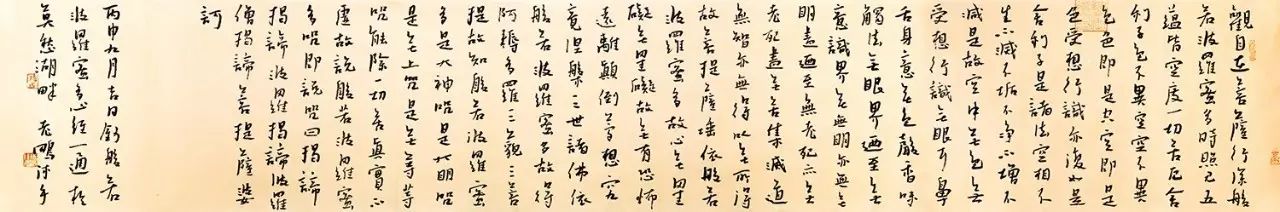 觀自在菩薩行深般
若波羅蜜多時照見五
蘊皆空度一切苦厄舍
利子色不異空空不異
色色即是空空即是
色受想行識亦復如是
舍利子是諸法空相不
生不滅不垢不淨不增不
減是故空中無色無
受想行識無眼耳鼻
舌身意無色聲香味
觸法無眼界迺至無
意識界無無明亦無無
明盡迺至無老死亦無
老死盡無苦集滅道
無智亦無得以無所得
故菩提薩埵依般若
波羅蜜多故心無罣
礙無罣礙故無有恐怖
遠離顛倒夢想究
竟涅槃三世諸佛依
般若波羅蜜多故得
阿耨多羅三藐三菩
提故知般若波羅蜜
多是大神呪是大明呪
是無上呪是無等等
呪能除一切苦真實不
虛故說般若波羅蜜
多呪即說呪曰揭諦
揭諦波羅揭諦波羅
僧揭諦菩提薩婆
訶
丙申九月吉日鈔般若
波羅蜜多心經一通於
莫愁湖畔 老鴨沐手